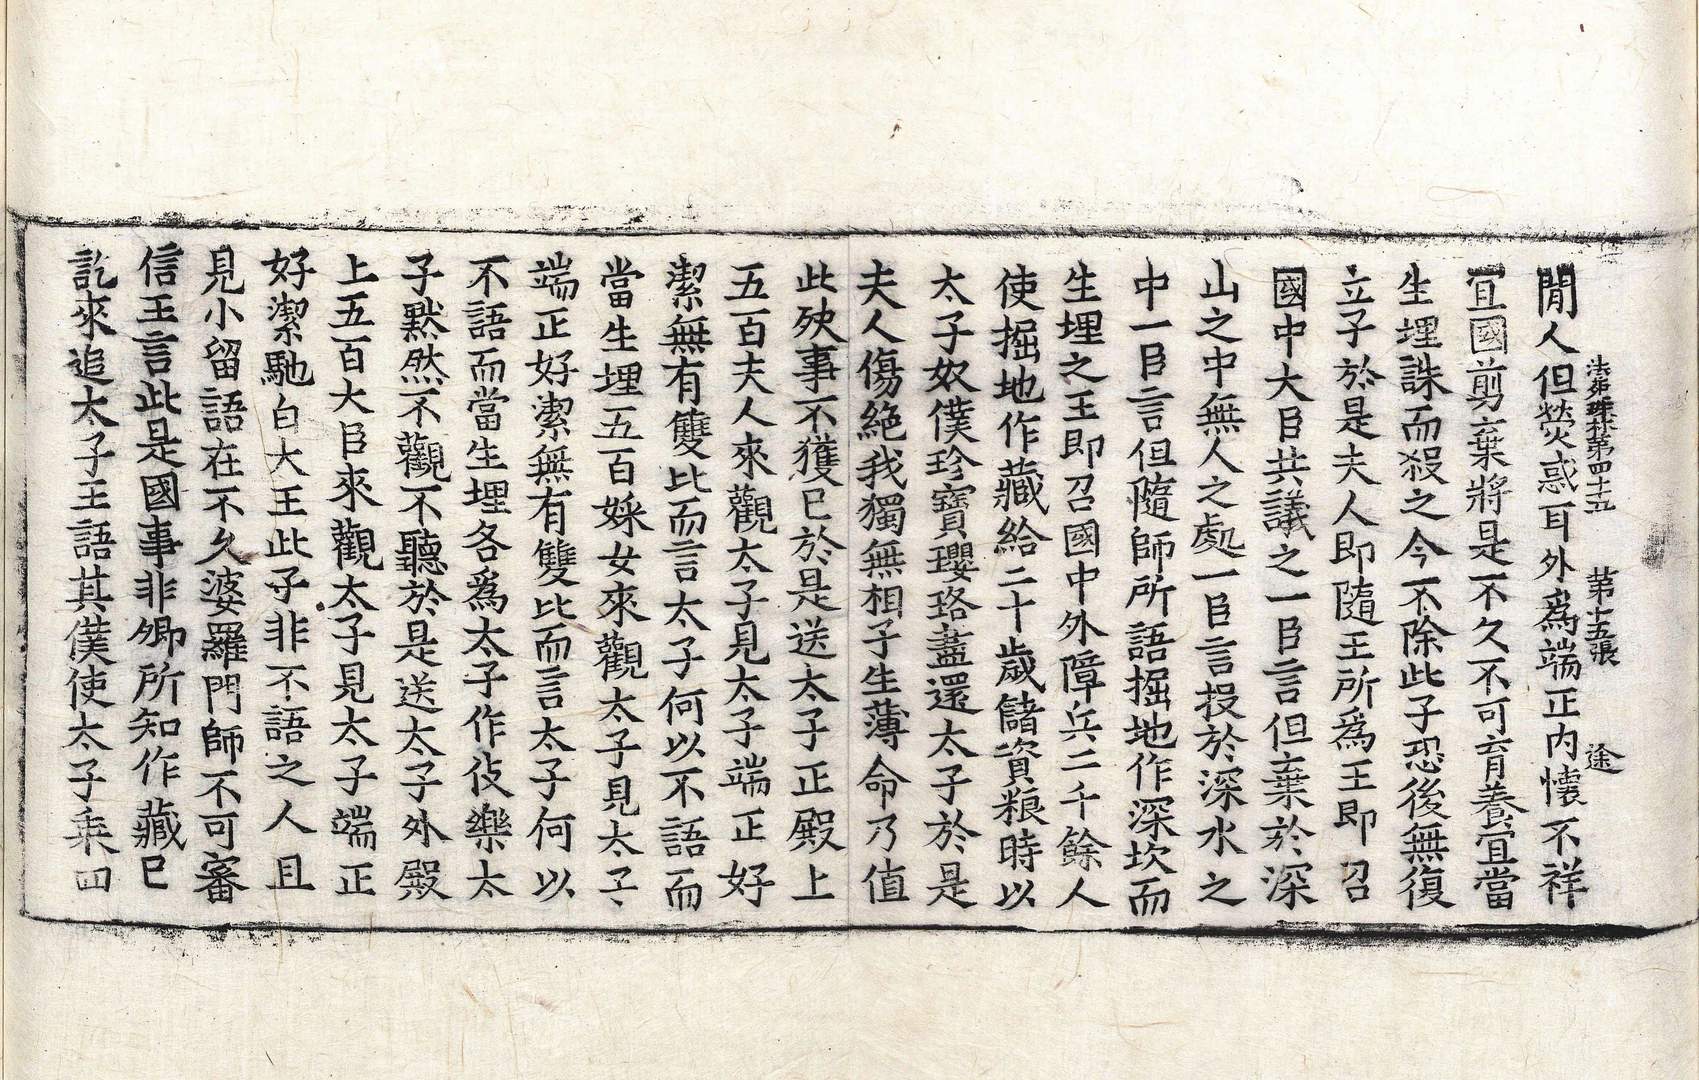 法苑珠林第四十五 第十五張 途
閒人但熒惑耳外爲端正內懷不祥
宜國剪棄將是不久不可育養宜當
生埋誅而殺之今不除此子恐後無復
立子於是夫人即隨王所爲王即召
國中大臣共議之一臣言但棄於深
山之中無人之處一臣言投於深水之
中一臣言但隨師所語掘地作深坎而
生埋之王即召國中外障兵二千餘人
使掘地作藏給二十歲儲資粮時以
太子奴僕珍寶瓔珞盡還太子於是
夫人傷絶我獨無相子生薄命乃值
此殃事不獲已於是送太子正殿上
五百夫人來觀太子見太子端正好
潔無有雙比而言太子何以不語而
當生埋五百婇女來觀太子見太子
端正好潔無有雙比而言太子何以
不語而當生埋各爲太子作伎樂太
子默然不觀不聽於是送太子外殿
上五百大臣來觀太子見太子端正
好潔馳白大王此子非不語之人且
見小留語在不久婆羅門師不可審
信王言此是國事非卿所知作藏已
訖來追太子王語其僕使太子乘四